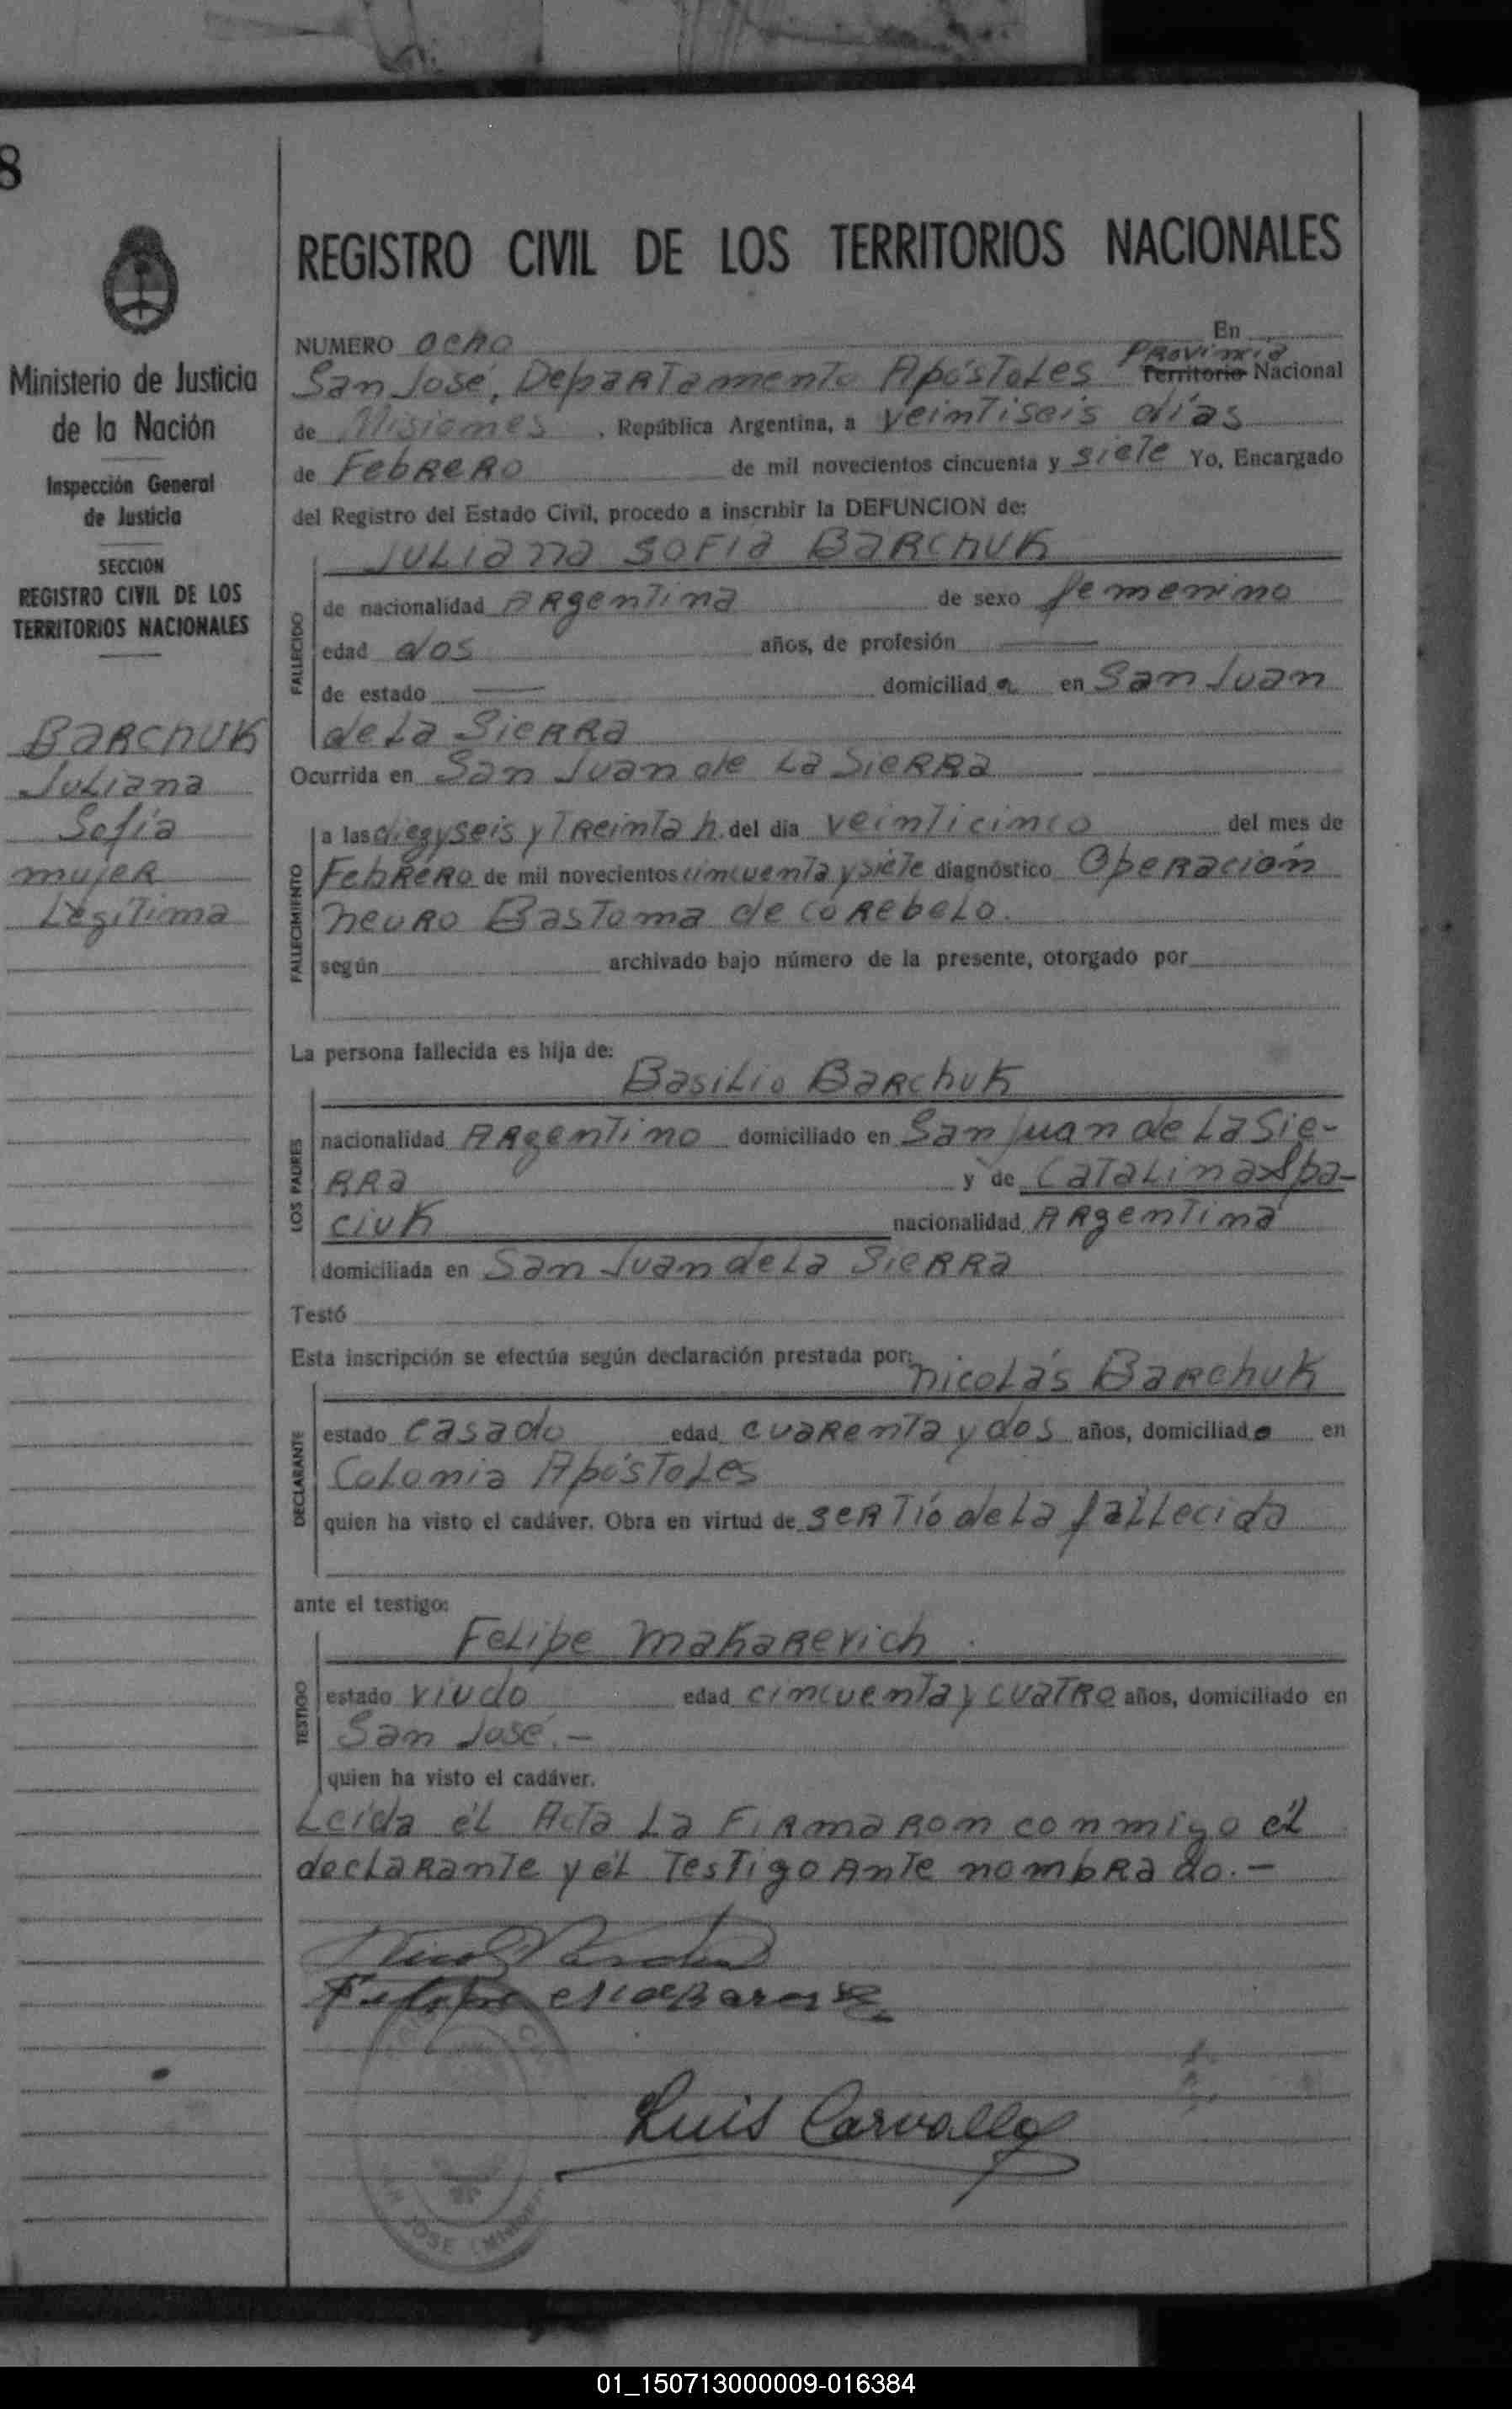 8
Ministerio de Justicia
de la Nación
Inspección General
de Justicia
SECCION
REGISTRO CIVIL DE LOS
TERRITORIOS NACIONALES
Barchuk
Juliana
Sofía
mujer
Legítima
REGISTRO CIVIL DE LOS TERRITORIOS NACIONALES
NUMERO ocho En
San José, Departamento Apóstoles Provincia Territorio Nacional
de Misiones, República Argentina, a veintiseis días
de Febrero de mil novecientos cincuenta y siete Yo, Encargado
del Registro del Estado Civil, procedo a inscribir la DEFUNCION de:
Juliana Sofia Barchuk
FALLECIDO
de nacionalidad Argentina de sexo femenino
edad dos años, de profesión —
de estado — domiciliad a en San Juan
de La Sierra
Ocurrida en San Juan de La Sierra
FALLECIMIENTO
a las diez y seis y Treinta h. del día veinticinco del mes de
Febrero de mil novecientos cincuenta y siete diagnóstico Operación
neuro Bastoma de corebelo.
según archivado bajo número de la presente, otorgado por
La persona fallecida es hija de:
Basilio Barchuk
LOS PADRES
nacionalidad Argentino domiciliado en San Juan de La Sie-
rra y de Catalina Spa-
ciuk nacionalidad Argentina
domiciliada en San Juan de La Sierra
Testó
Esta inscripción se efectúa según declaración prestada por:
nicolás Barchuk
DECLARANTE
estado casado edad cuarenta y dos años, domiciliado en
Colonia Apóstoles
quien ha visto el cadáver. Obra en virtud de ser Tío de La fallecida
ante el testigo:
Felipe Makarevich.
TESTIGO
estado viudo edad cincuenta y cuatro años, domiciliado en
San José.-
quien ha visto el cadáver.
Leída él Acta La Firmaron conmigo él
declarante y él Testigo Ante nombrado.-
Luis Carvallo
SAN JOSE (Misiones)
01_150713000009-016384